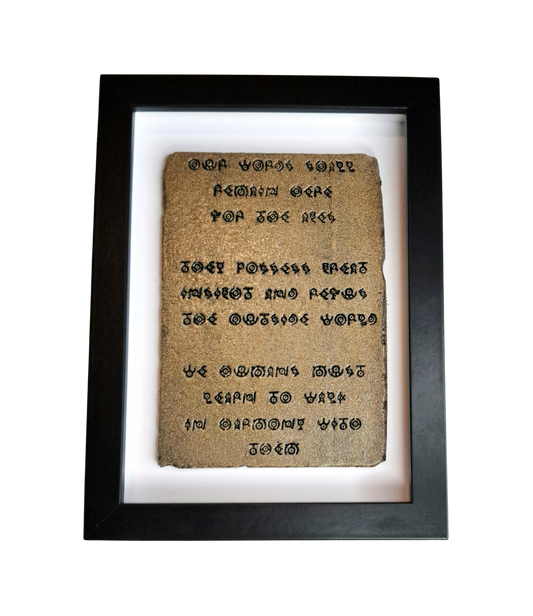 OUR WORDS SHALL
REMAIN HERE
FOR THE AGES
THEY POSSESS GREAT
INSIGHT AND
THE OUTSIDE WORLD
WE HUMANS MUST
LEARN TO WALK
IN HARMONY WITH
THEM